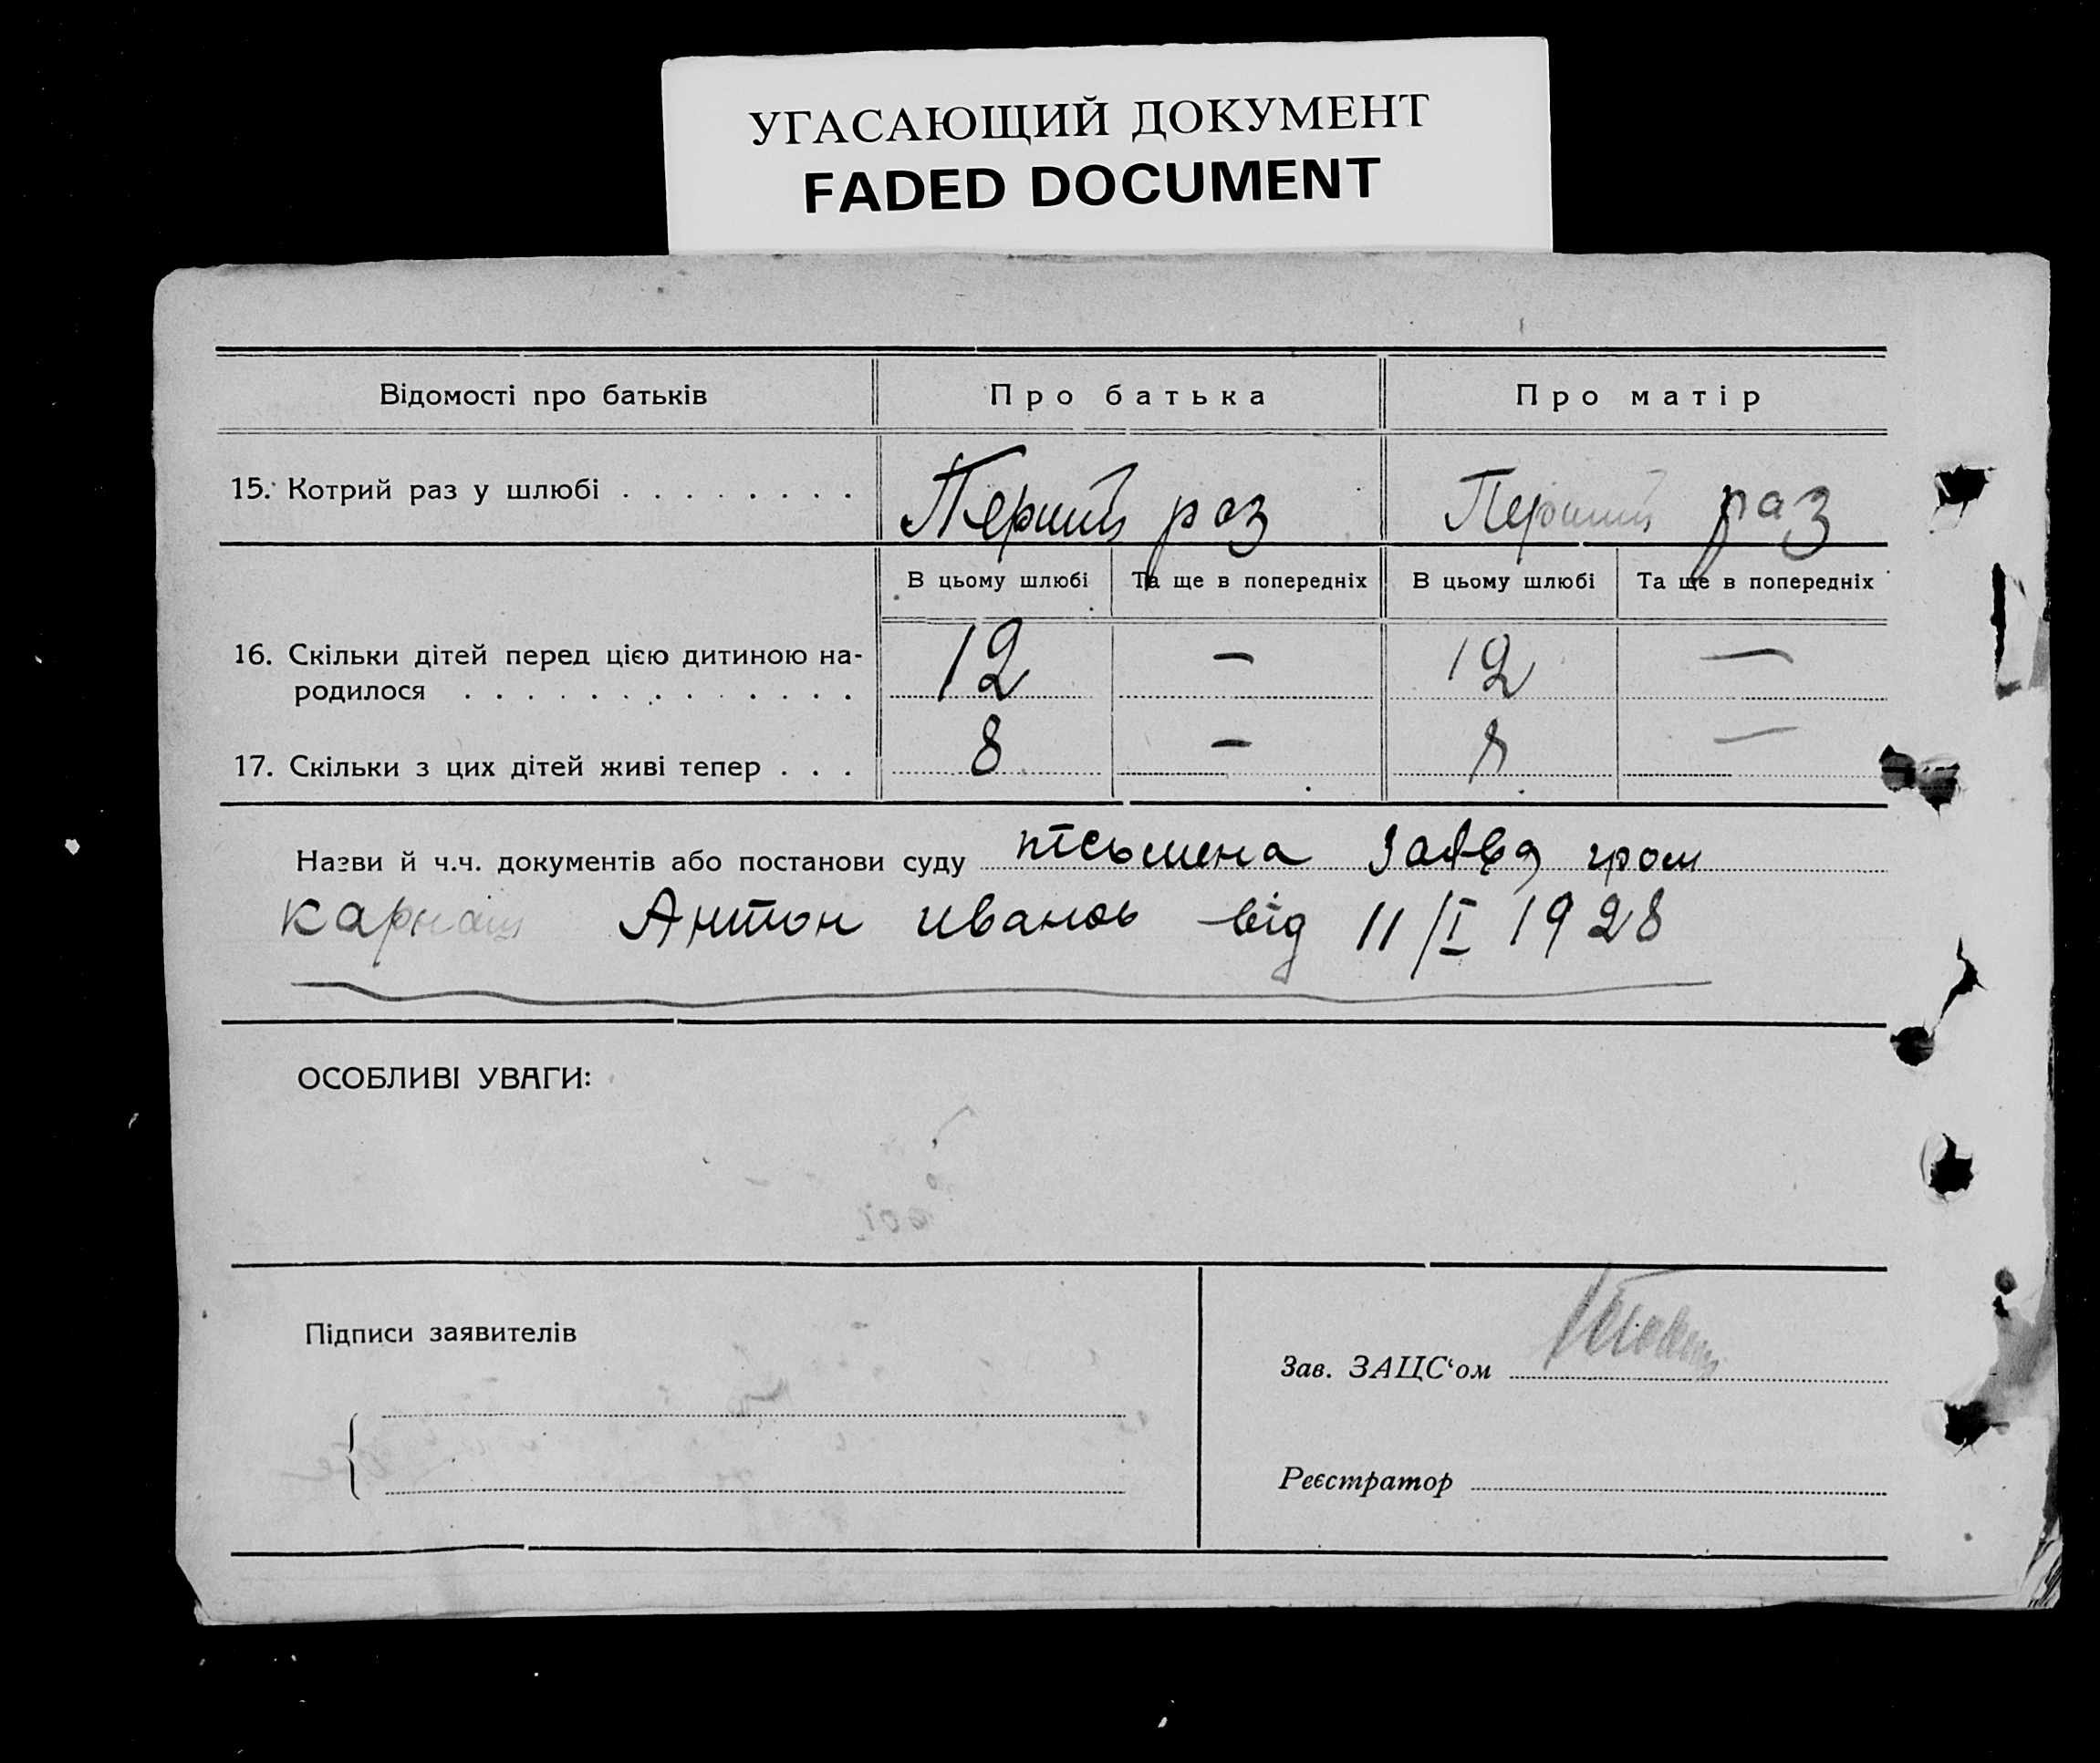 УГАСАЮЩИЙ ДОКУМЕНТ
FADED DOCUMENT
Відомості про батьків Про батька Про матір
15. Котрий раз у шлюбі . . . . . . . . Перший раз Перший раз
В цьому шлюбі Та ще в попередніх В цьому шлюбі Та ще в попередніх
16. Скільки дітей перед цією дитиною на-
родилося . . . . . . . . . . . . . . 12 — 12 —
17. Скільки з цих дітей живі тепер . . . 8 — 8 —
Назви й ч.ч. документів або постанови суду пісьмена заява гром
Антон від 11/I 1928
ОСОБЛИВІ УВАГИ:
Підписи заявителів
Зав. ЗАЦС‘ом
Реєстратор